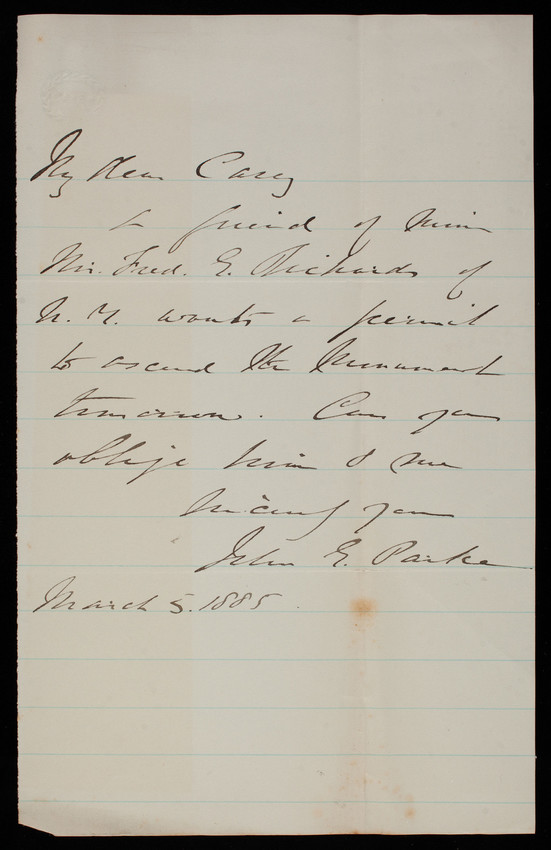 My dear Casey
A friend of mine
Mr. Fred. E. Richards of
N. Y. wants a permit
to ascend the Monument
tomorrow. Can you
oblige him & me
Sincerely yours
John G. Parke
March 5. 1885.